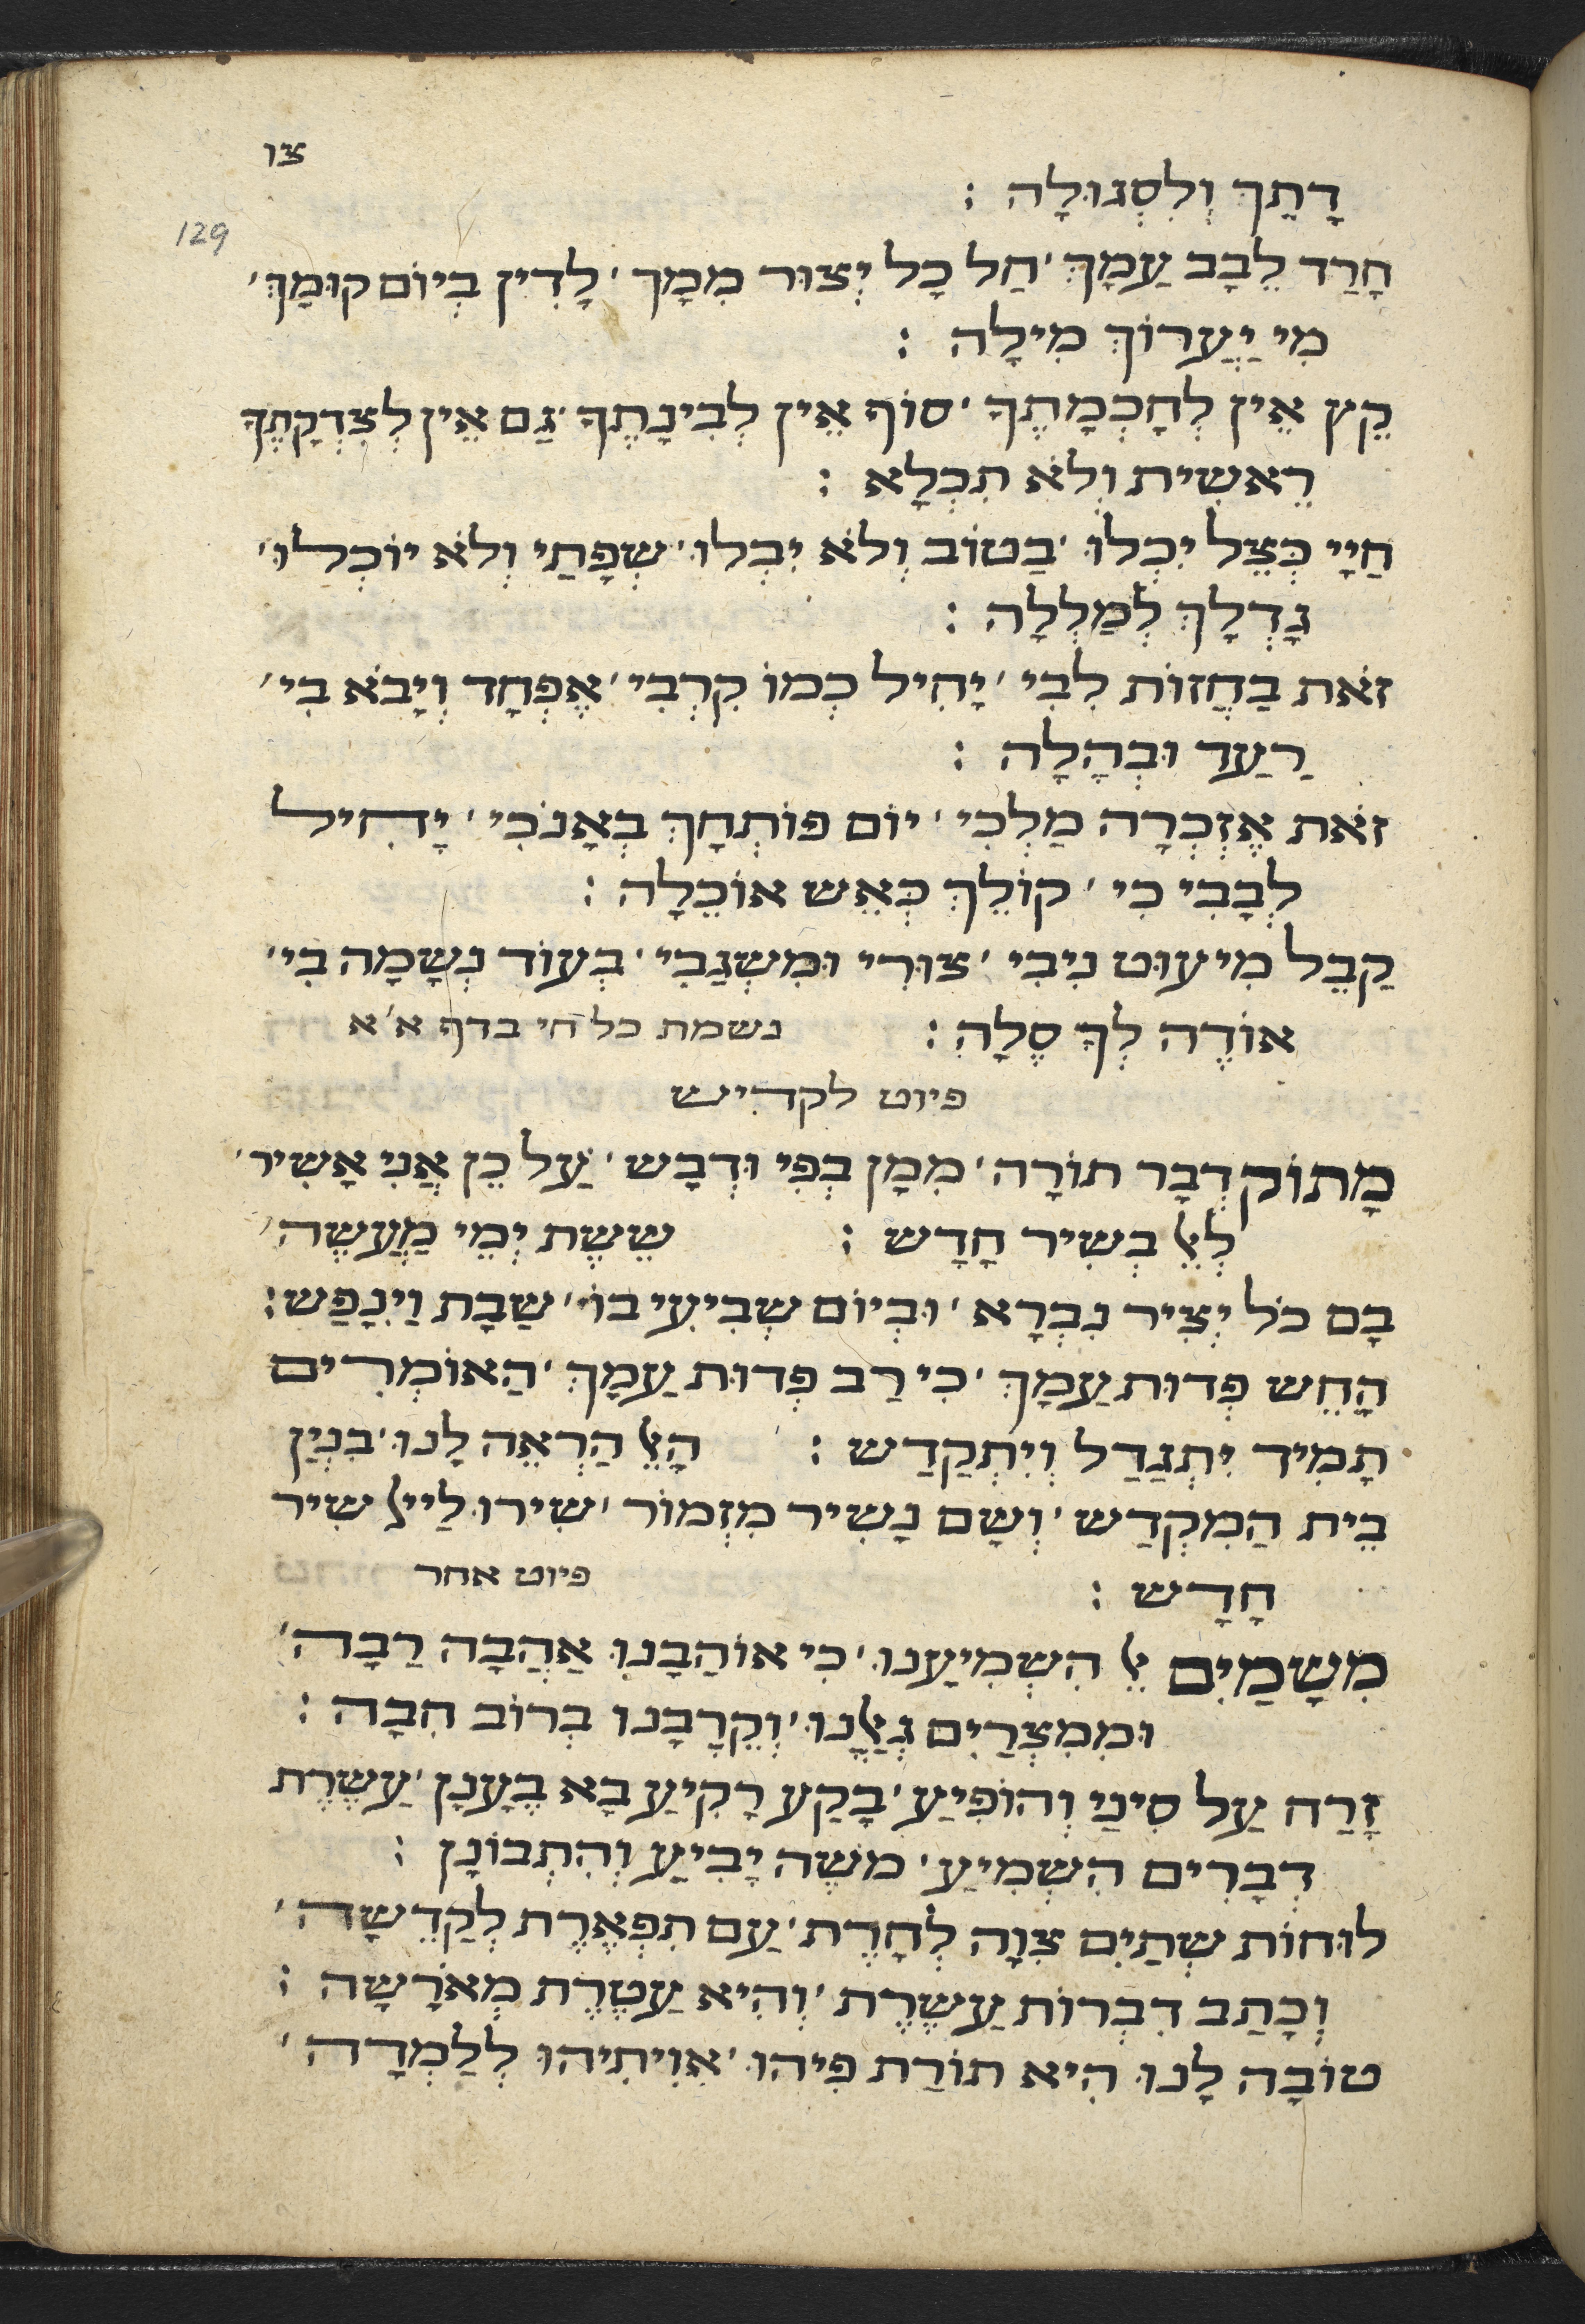 צו
דָתֵךְ וְלִסְגוּלָה :
129
חָרַד לֵבָב עַמָךְ ׳ חַל כָּל יְצוּר מִמָּךְ ׳ לָדִין בְיוֹם קוּמָךְ ׳
מִי יַעֲרוֹךְ מִילָה :
קֵץ אֵין לְחָכְמָתֶךָ ׳ סוֹף אֵין לְבִינָתֶךָ ׳ גַם אֵין לְצִדְקָתֶךָ
רֵאשִׁית וְלֹא תִכְלָא :
חַיַי כְּצֵל יִכְלוּ ׳ בַטוֹב וְלֹא יִבְלוּ ׳ שְׂפָתַי וְלֹא יוֹכְלוּ ׳
גָדְלָךְ לְמַלְלָה :
זֹאת בַחֲזוֹת לִבִי ׳ יָחִיל כְמוֹ קִרְבִי ׳ אֶפְחָד וְיָבֹא בִי ׳
רַעַד וּבְהָלָה :
זֹאת אֶזְכְרָה מַלְכִי ׳ יוֹם פּוֹתְחָךְ בְאָנֹכִי ׳ יָחִיל
לְבָבִי כִי ׳ קוֹלֵךְ כְּאֵשׁ אוֹכֵלָה :
קַבֵל מִיעוּט נִיבִי ׳ צוּרִי וּמִשְׂגַבִי ׳ בְעוֹד נְשָׁמָה בִי ׳
אוֹדֶה לְךָ סֶלָה : נשמת כל חי בדף א׳א
פיוט לקדיש
מָתוֹק דְבַר תוֹרָה ׳ מִמָן בְפִי וּדְבָשׁ ׳ עַל כֵן אֲנִי אָשִׁיר ׳
לְאֵל בְשִׁיר חָדָשׁ : שֵׁשֶׁת יְמֵי מַעֲשֶׂה ׳
בָם כֹל יְצִיר נִבְרָא ׳ וּבְיוֹם שְׁבִיעִי בוֹ ׳ שָׁבַת וַיִנָפַשׁ :
הָחֵשׁ פְדוּת עַמָךְ ׳ כִי רַב פְדוּת עַמָךְ ׳ הָאוֹמְרִים
תָמִיד יִתְגַדַל וְיִתְקַדַשׁ : הָאֵל הַרְאֵה לָנוּ ׳ בִנְיַן
בֵית הַמִקְדַשׁ ׳ וְשָׁם נָשִׁיר מִזְמוֹר ׳ שִׁירוּ לַייָ שִׁיר
חָדָשׁ : פיוט אחר
מִשָׁמַיִם אֵל הִשְׁמִיעָנוּ ׳ כִי אוֹהַבָנוּ אַהֲבָה רַבָה ׳
וּמִמִצְרַיִם גְאָלָנוּ ׳ וְקֵרְבָנוּ בְרוֹב חִבָה :
זָרַח עַל סִינַי וְהוֹפִיעַ ׳ בָקַע רָקִיעַ בָא בֶעָנָן ׳ עֲשֶׂרֶת
דְבָרִים הִשְׁמִיעַ ׳ מֹשֶׁה יָבִיעַ וְהִתְבוֹנָן :
לוּחוֹת שְׁתַיִם צִוָה לְחָרֵת ׳ עַם תִפְאֶרֶת לְקַדִשָׁה ׳
וְכָתַב דִבְרוֹת עֲשֶׂרֶת ׳ וְהִיא עֲטֶרֶת מְאֹרָשָׂה :
טוֹבָה לָנוּ הִיא תוֹרַת פִיהוּ ׳ אִוִיתִיהוּ לְלַמְדָה ׳